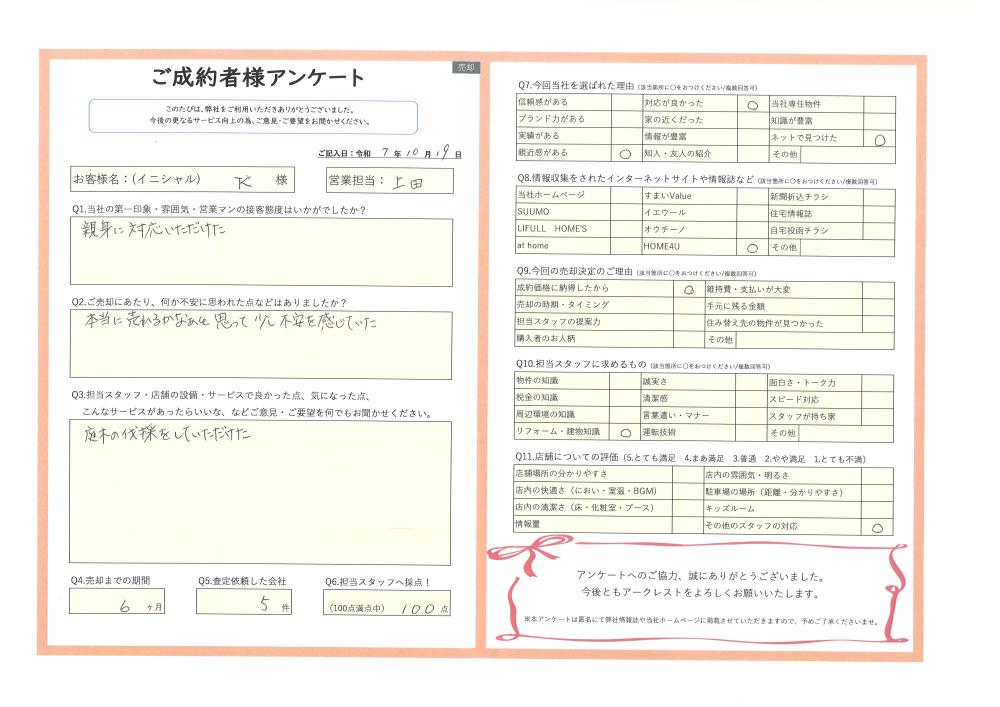 売却
ご成約者様アンケート
このたびは、弊社をご利用いただきありがとうございました。
今後の更なるサービス向上の為、ご意見・ご要望をお聞かせください。
ご記入日：令和 7 年 10 月 19 日
お客様名：(イニシャル) K 様
営業担当： 上田
Q1.当社の第一印象・雰囲気・営業マンの接客態度はいかがでしたか？
親身に対応いただけた
Q2.ご売却にあたり、何か不安に思われた点などはありましたか？
本当に売れるかなぁと思って少し不安を感じていた
Q3.担当スタッフ・店舗の設備・サービスで良かった点、気になった点、
こんなサービスがあったらいいな、などご意見・ご要望を何でもお聞かせください。
庭木の伐採をしていただけた
Q4.売却までの期間
6 ヶ月
Q5.査定依頼した会社
5 件
Q6.担当スタッフへ採点！
(100点満点中) 100 点
Q7.今回当社を選ばれた理由 (該当箇所に〇をおつけください/複数回答可)
信頼感がある 対応が良かった ○ 当社専任物件
ブランド力がある 家の近くだった 知識が豊富
実績がある 情報が豊富 ネットで見つけた ○
親近感がある ○ 知人・友人の紹介 その他
Q8.情報収集をされたインターネットサイトや情報誌など (該当箇所に〇をおつけください/複数回答可)
当社ホームページ すまいValue 新聞折込チラシ
SUUMO イエウール 住宅情報誌
LIFULL HOME'S オウチーノ 自宅投函チラシ
at home HOME4U ○ その他
Q9.今回の売却決定のご理由 (該当箇所に〇をおつけください/複数回答可)
成約価格に納得したから ○ 維持費・支払いが大変
売却の時期・タイミング 手元に残る金額
担当スタッフの提案力 住み替え先の物件が見つかった
購入者のお人柄 その他
Q10.担当スタッフに求めるもの (該当箇所に〇をおつけください/複数回答可)
物件の知識 誠実さ 面白さ・トーク力
税金の知識 清潔感 スピード対応
周辺環境の知識 言葉遣い・マナー スタッフが持ち家
リフォーム・建物知識 ○ 運転技術 その他
Q11.店舗についての評価 (5.とても満足 4.まあ満足 3.普通 2.やや満足 1.とても不満)
店舗場所の分かりやすさ 店内の雰囲気・明るさ
店内の快適さ（におい・室温・BGM） 駐車場の場所（距離・分かりやすさ）
店内の清潔さ（床・化粧室・ブース） キッズルーム
情報量 その他のスタッフの対応 ○
アンケートへのご協力、誠にありがとうございました。
今後ともアークレストをよろしくお願いいたします。
※本アンケートは匿名にて弊社情報誌や当社ホームページに掲載させていただきますので、予めご了承くださいませ。